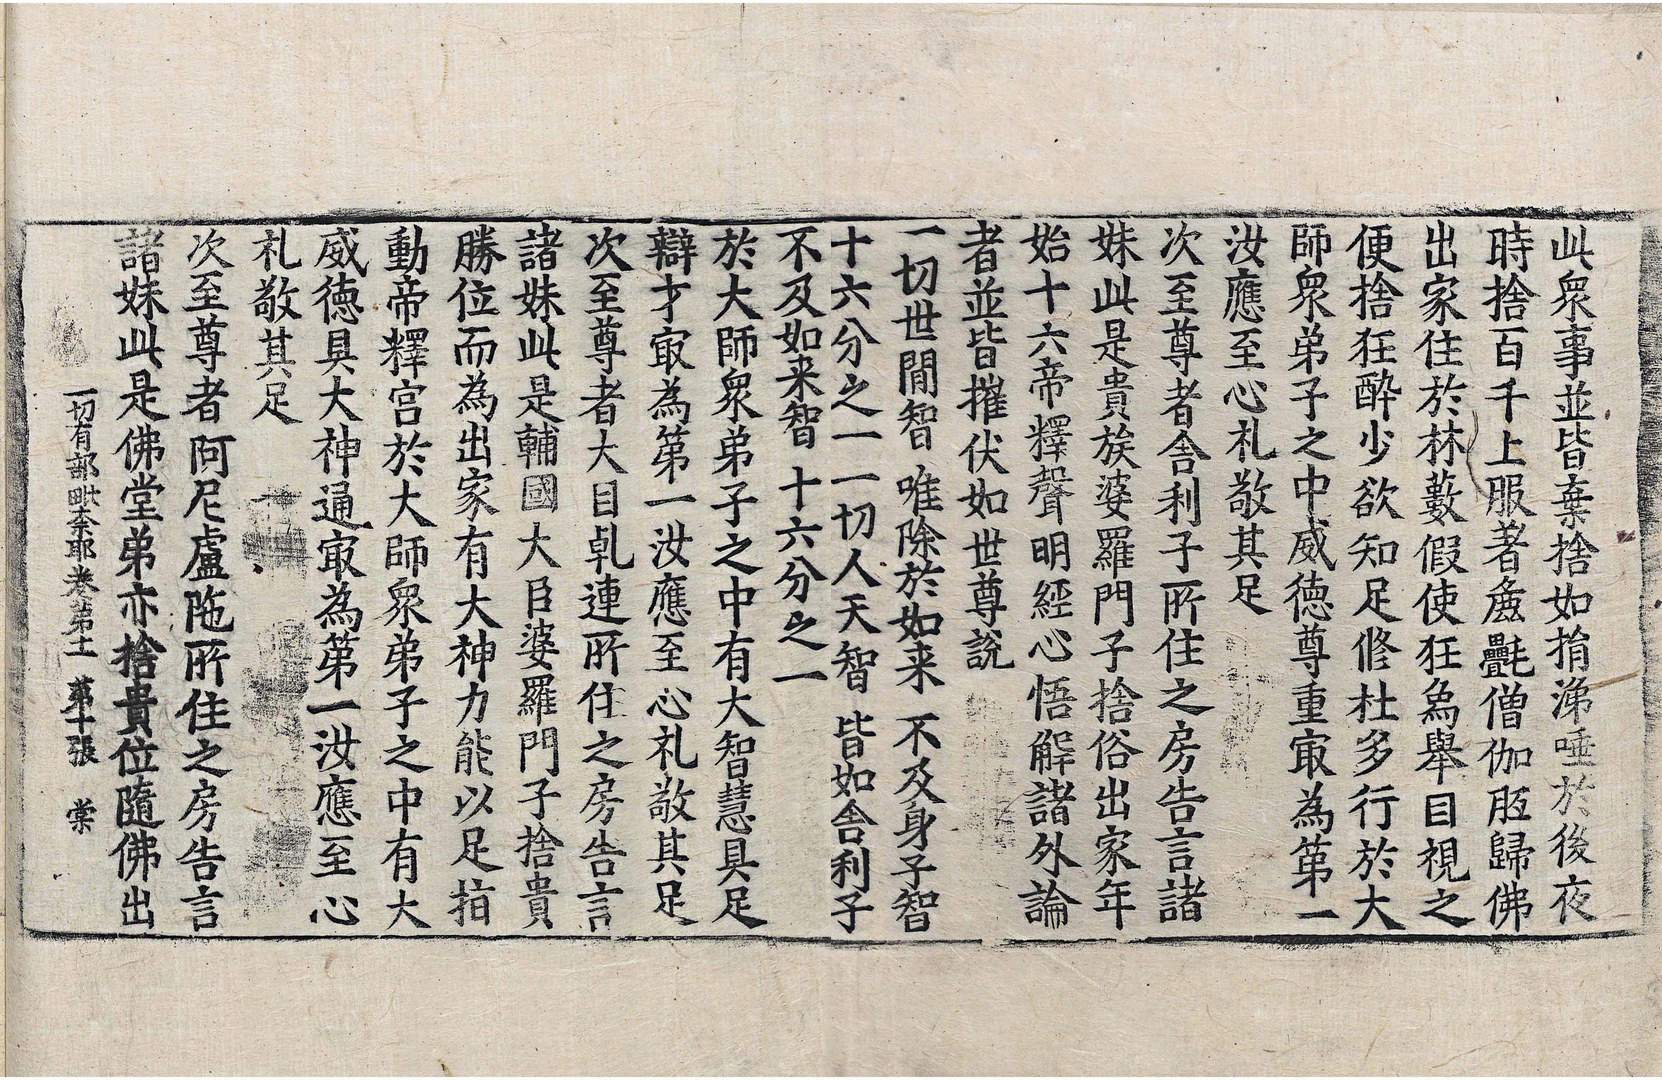 此衆事並皆棄捨如捐涕唾於後夜
時捨百千上服著麁㲲僧伽胝歸佛
出家住於林藪假使狂象舉目視之
便捨狂酔少欲知足修杜多行於大
師衆弟子之中威德尊重㝡為第一
汝應至心礼敬其足
次至尊者舎利子所住之房告言諸
妹此是貴族婆羅門子捨俗出家年
始十六帝釋聲明經心悟解諸外論
者並皆摧伏如世尊說
一切世間智 唯除於如来 不及身子智
十六分之一 一切人天智 皆如舎利子
不及如来智 十六分之一
於大師衆弟子之中有大智慧具足
辯才㝡為第一汝應至心礼敬其足
次至尊者大目乹連所住之房告言
諸妹此是輔國大臣婆羅門子捨貴
勝位而為出家有大神力能以足拍
動帝釋宮於大師衆弟子之中有大
威德具大神通㝡為第一汝應至心
礼敬其足
次至尊者阿尼盧陁所住之房告言
諸妹此是佛堂弟亦捨貴位隨佛出
一切有部毗奈耶卷第十一 第十張 棠